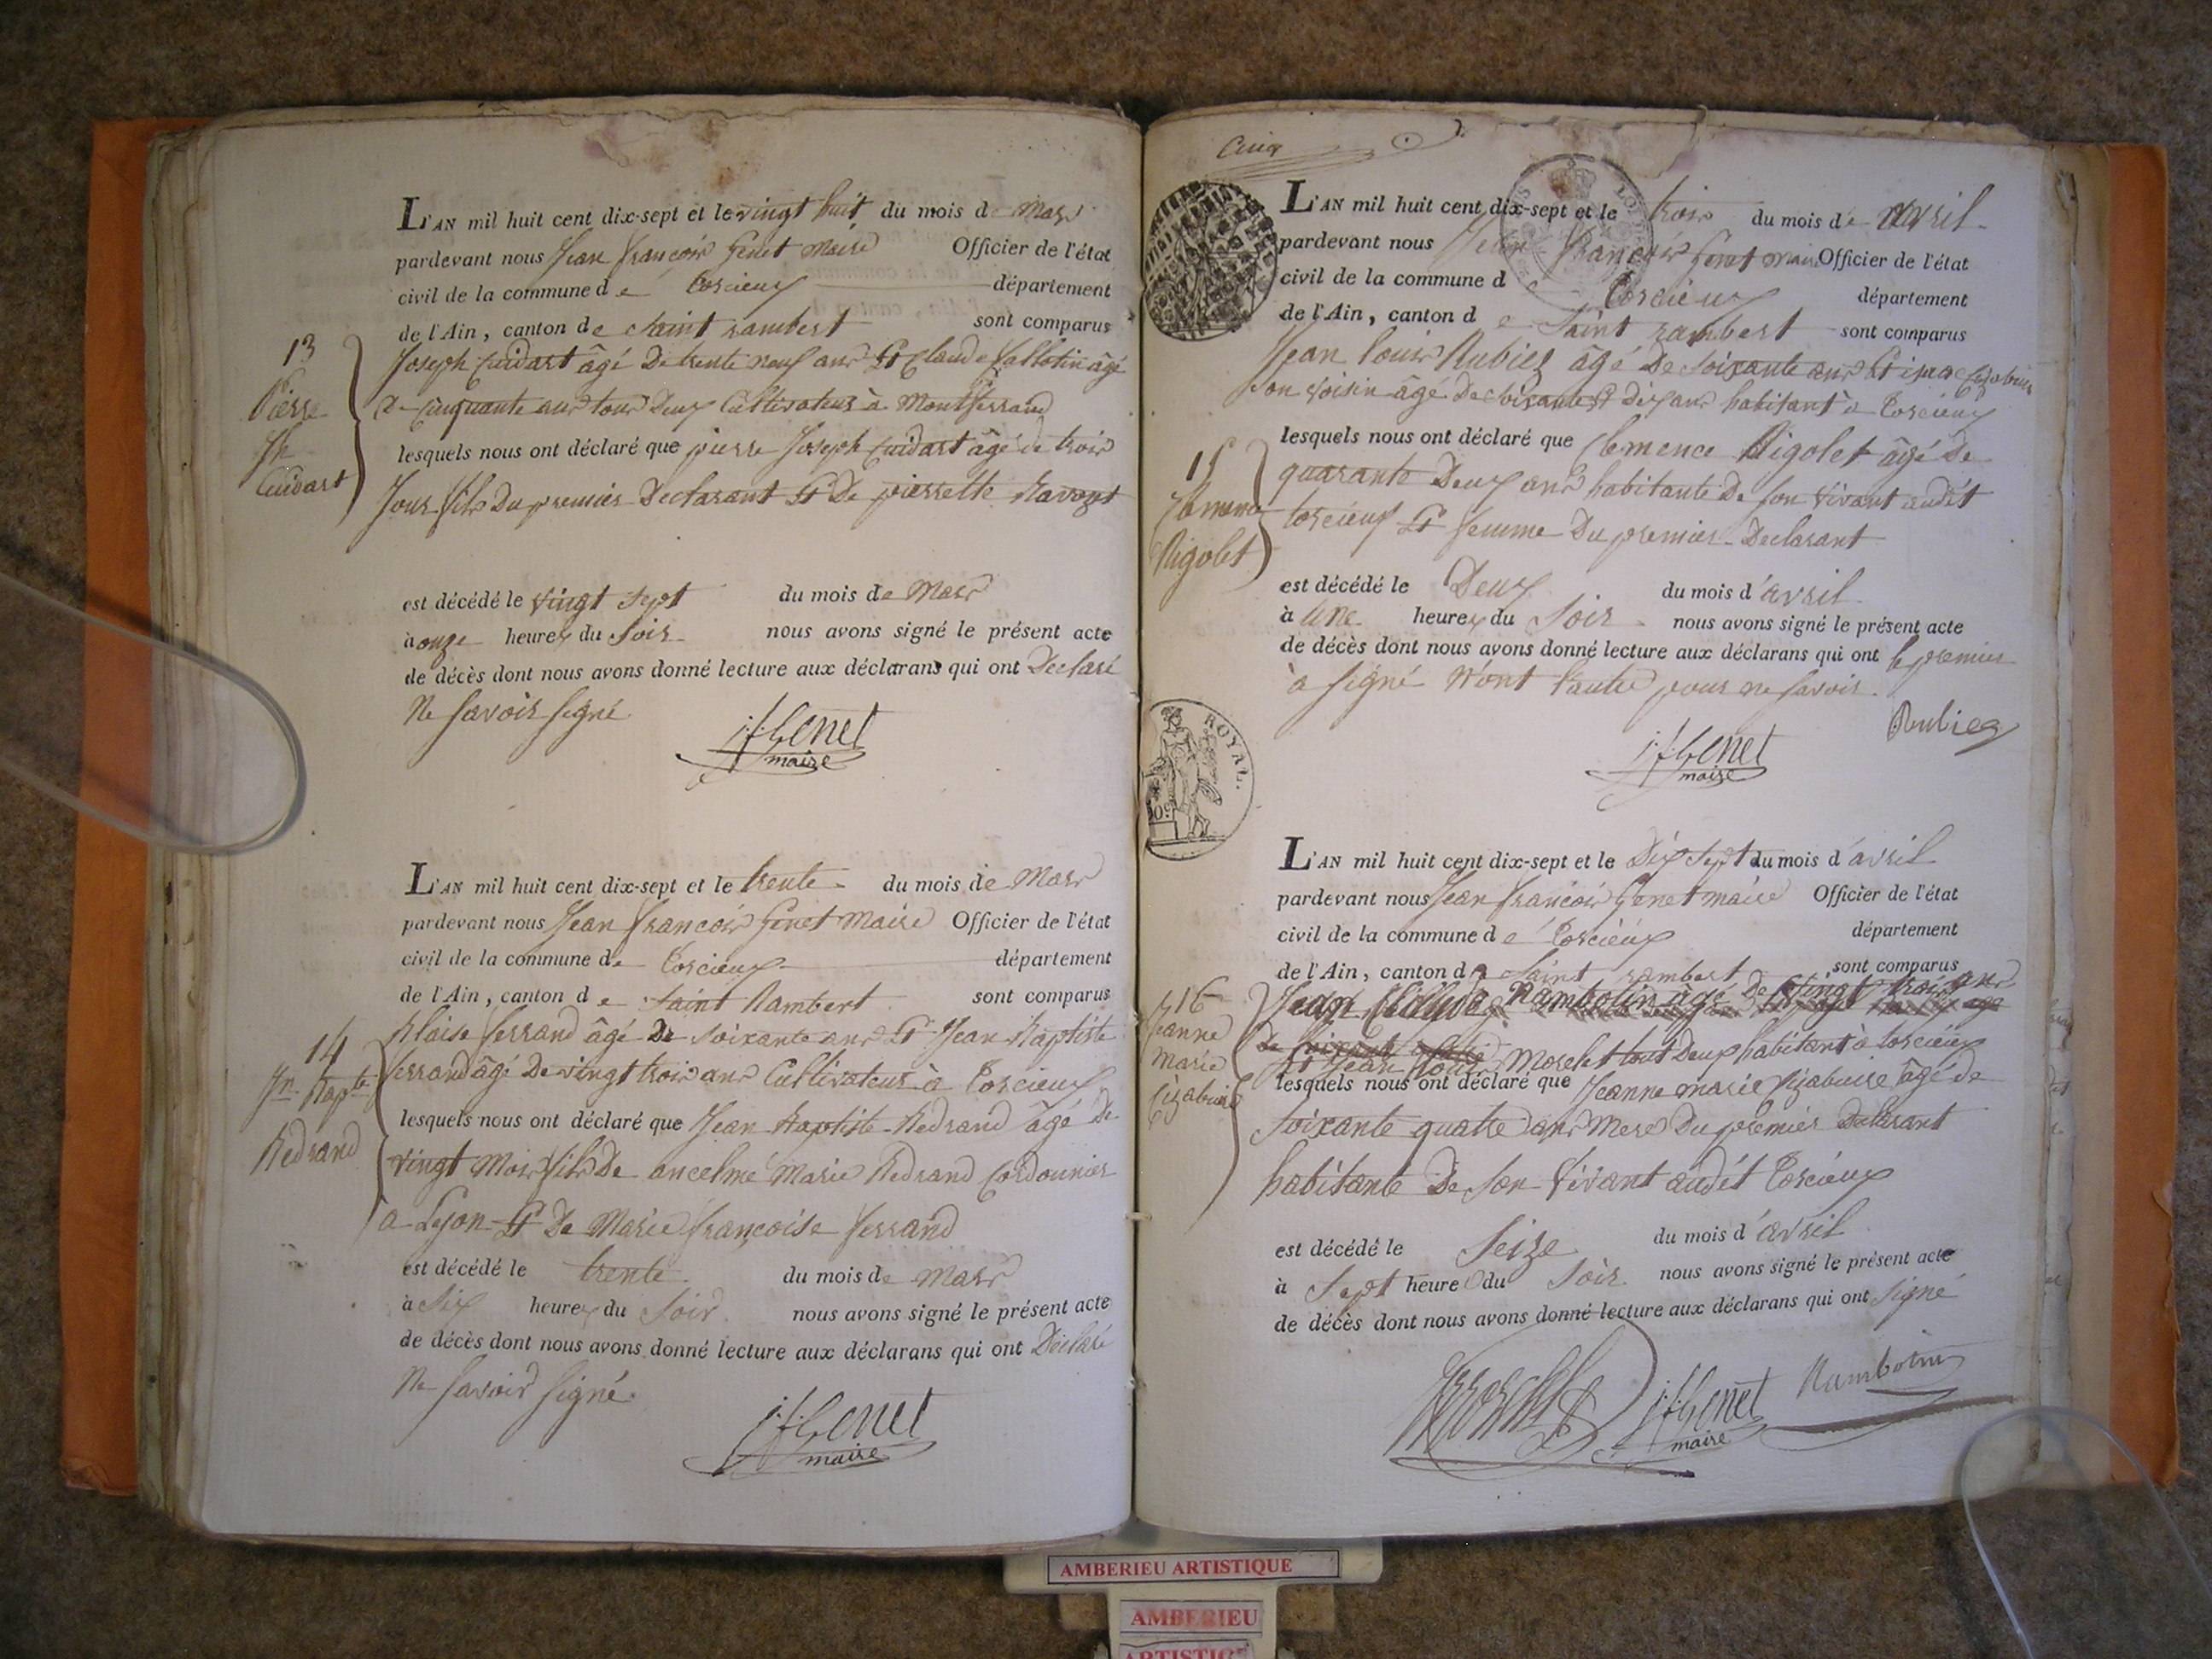 L'AN mil huit cent dix-sept et le vingt huit du mois de Mars
pardevant nous Jean françois Genet Maire Officier de l'état
civil de la commune de Torcieux département
de l'Ain, canton de Saint rambert sont comparus
Joseph Cuidart âgé De trente neuf ans Et Claude Vallotin âgé
De Cinquante ans tous Deux Cultivateurs à Montferrand
lesquels nous ont déclaré que pierre Joseph Cuidart âgé de trois
Jours fils Du premier Declarant Et De pierrette Ravont
13
Pierre
Jh
Cuidart
est décédé le vingt sept du mois de Mars
à onze heures du Soir nous avons signé le présent acte
de décès dont nous avons donné lecture aux déclarans qui ont Déclaré
Ne Savoir Signé
j. f. Genet
maire
L'AN mil huit cent dix-sept et le trente du mois de Mars
pardevant nous Jean françois Genet Maire Officier de l'état
civil de la commune de Torcieux département
de l'Ain, canton de Saint Rambert sont comparus
Blaise ferrand âgé De Soixante ans Et Jean Baptiste
ferrand âgé De vingt trois ans Cultivateurs à Torcieux
lesquels nous ont déclaré que Jean Baptiste Bedrand âgé De
vingt Mois fils De ancelme Marie Bedrand Cordounier
a Lyon Et De Marie françoise ferrand
14
Jn. Bapte
Bedrand
est décédé le trente du mois de Mars
à Six heures du Soir nous avons signé le présent acte
de décès dont nous avons donné lecture aux déclarans qui ont Déclaré
Ne Savoir Signé
j. f. Genet
maire
Cinq
L'AN mil huit cent dix-sept et le trois du mois de avril
pardevant nous Jean françois Genet Maire Officier de l'état
civil de la commune de Torcieux département
de l'Ain, canton de Saint rambert sont comparus
Jean Louis Rubiez âgé De Soixante ans Et
Son voisin âgé De Soixante Et dix ans habitant à Torcieux
lesquels nous ont déclaré que Clemence Rigolet âgé De
quarante Deux ans habitante De son vivant audit
torcieux Et femme Du premier Declarant
15
Clemence
Rigolet
est décédé le Deux du mois d'avril
à Une heures du Soir nous avons signé le présent acte
de décès dont nous avons donné lecture aux déclarans qui ont le premier
à Signé Nont l'autre pour ne Savoir
Rubiez
j. f. Genet
maire
ROYAL.
L'AN mil huit cent dix-sept et le Dix Sept du mois d'avril
pardevant nous Jean françois Genet maire Officier de l'état
civil de la commune de Torcieux département
de l'Ain, canton de Saint rambert sont comparus
Jean Rambotin âgé De vingt trois ans
Et Jean Louis Morelet tout Deux habitant à torcieux
lesquels nous ont déclaré que Jeanne marie Cizabuire âgé de
Soixante quatre ans Mere Du premier Declarant
habitante De Son Vivant audit Torcieux
16
Jeanne
Marie
Cizabuire
est décédé le Seize du mois d'avril
à Sept heure du Soir nous avons signé le présent acte
de décès dont nous avons donné lecture aux déclarans qui ont Signé
j. f. Genet
maire
Rambotin
AMBERIEU ARTISTIQUE
AMBERIEU